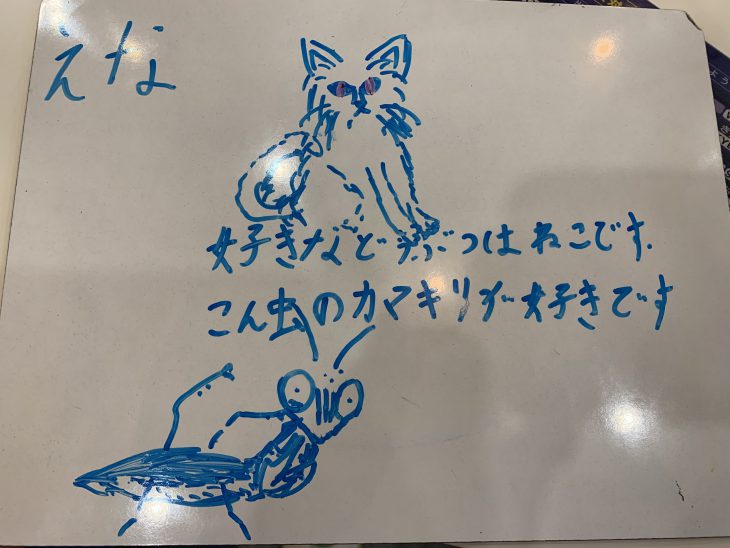 えな
好きなどうぶつはねこです.
こん虫のカマキリが好きです